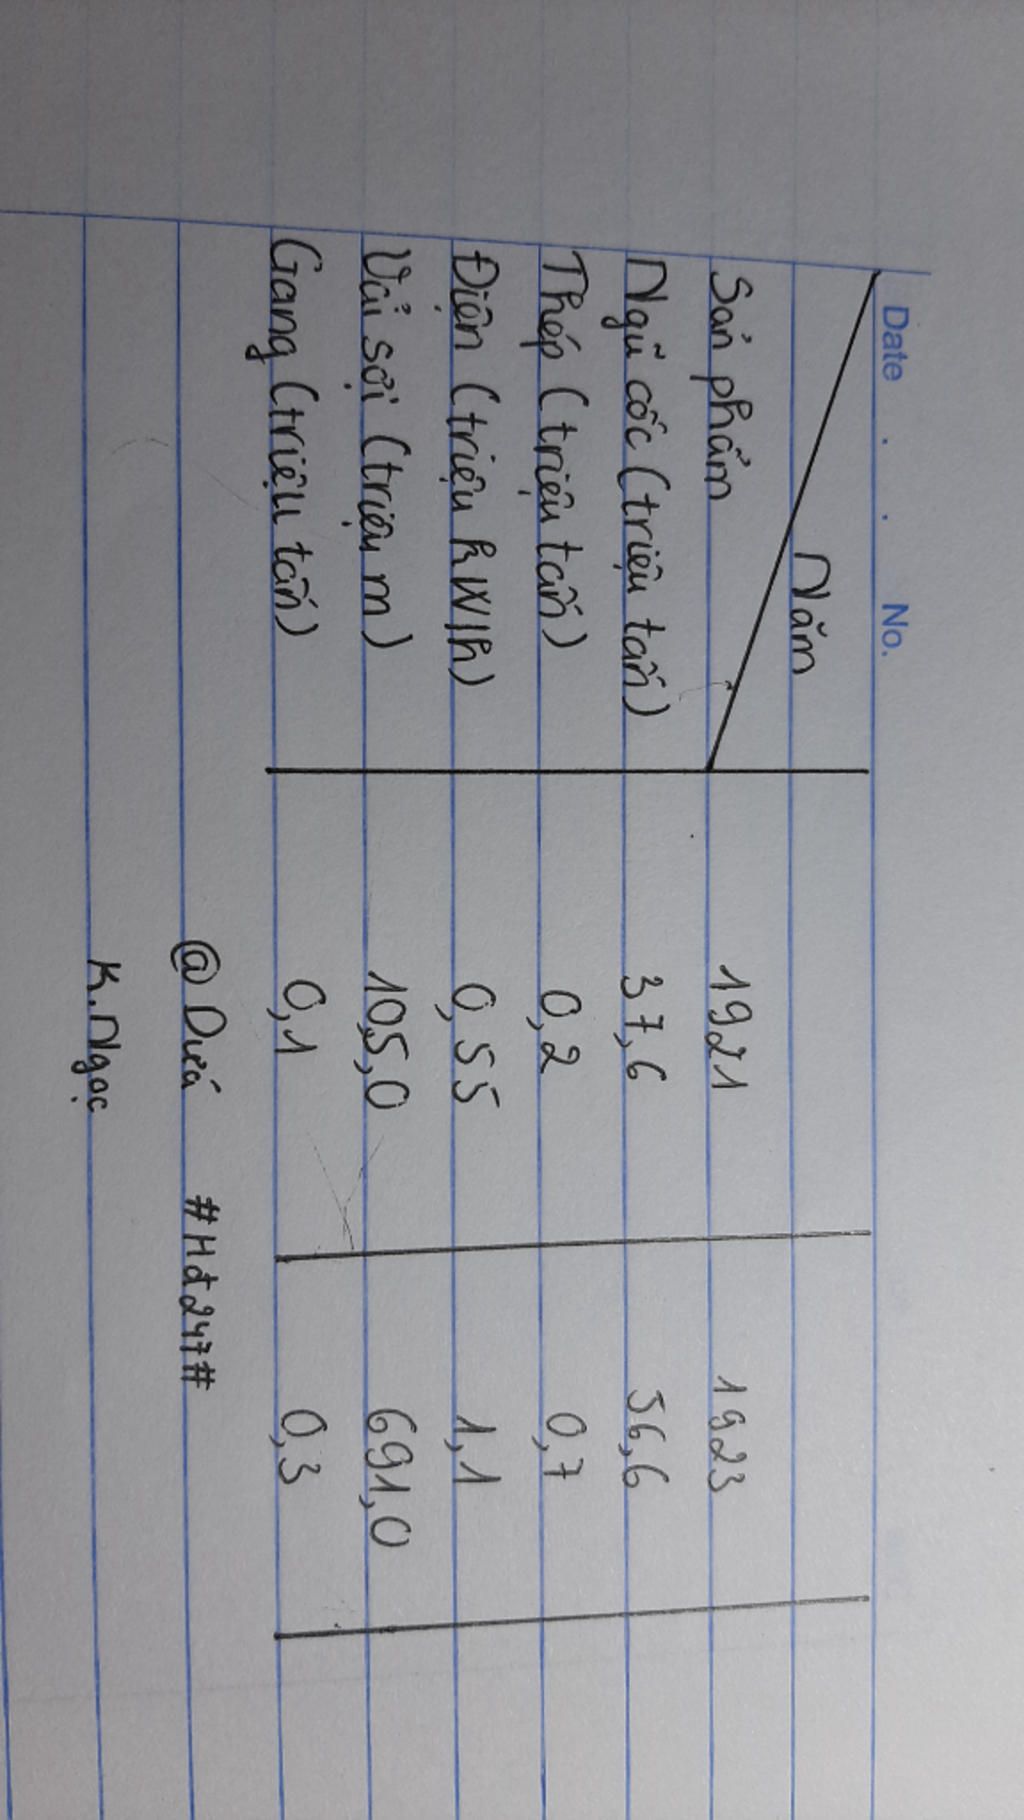 Date . . . No.
Năm
Sản phẩm 1921 1923
Ngũ cốc (triệu tấn) 37,6 56,6
Thép (triệu tấn) 0,2 0,7
Điện (triệu kWh) 0,55 1,1
Vải sợi (triệu m) 105,0 691,0
Gang (triệu tấn) 0,1 0,3
@Dứa #Hđ247#
K.Ngọc